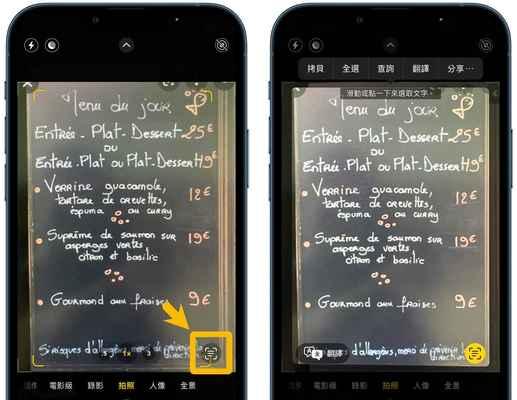 Menu du jour
Entrée - Plat - Dessert 25€
ou
Entrée Plat ou Plat-Dessert 19€
Verrine guacamole,
tartare de crevettes,
espuma au curry
12€
Suprême de saumon sur
asperges vertes
citron et basilic
19€
Gourmand aux fraises 9€
Si risques d'allergènes, merci de prévenir la
direction
電影級 錄影 拍照 人像 全景
拷貝 全選 查詢 翻譯 分享⋯
滑動或點一下來選取文字。
Menu du jour
Entrée - Plat - Dessert 25€
ou
Entrée Plat ou Plat-Dessert 19€
Verrine guacamole,
tartare de crevettes,
espuma au curry
12€
Suprême de saumon sur
asperges vertes
citron et basilic
19€
Gourmand aux fraises 9€
翻譯
d'allergènes, merci de prévenir
direction
電影級 錄影 拍照 人像 全景